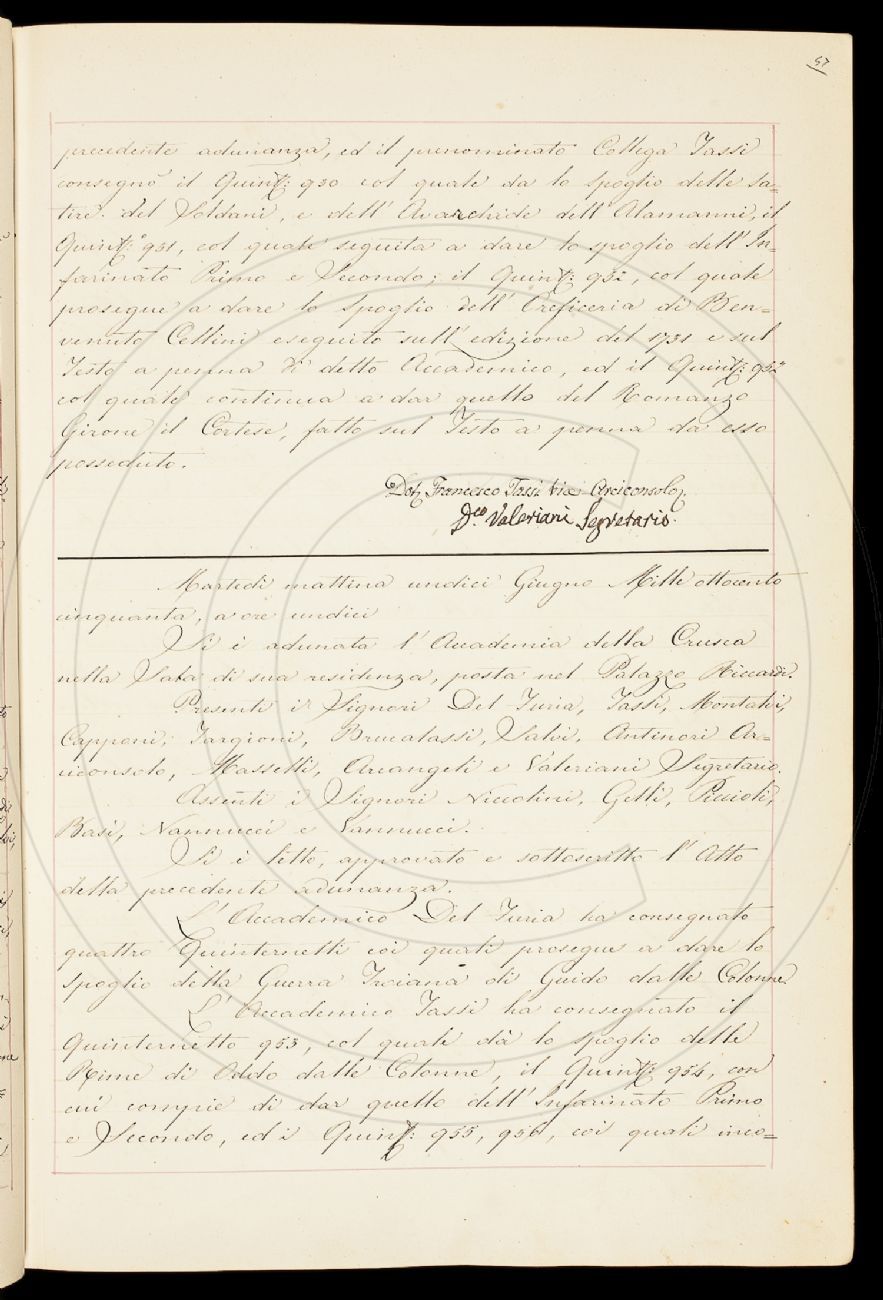 57
precedente adunanza, ed il prenominato Collega Tassi
consegnò il Quint.: 930 col quale dà lo spoglio delle Sa=
tire del Soldani, e dell'Avarchide dell'Alamanni, il
Quint.° 931, col quale seguita a dare lo spoglio dell'In=
farinato Primo e Secondo; il Quint.: 952, col quale
prosegue a dare lo Spoglio dell'Oreficeria di Ben=
venuto Cellini eseguito sull'edizione del 1731 e sul
Testo a penna di detto Accademico, ed il Quint.: 952
col quale continua a dar quello del Romanzo
Girone il Cortese, fatto sul Testo a penna da esso
posseduto.
Dot. Francesco Tassi Vice Arciconsolo
D.co Valeriani Segretario.
Martedì mattina undici Giugno Mille ottocento
cinquanta, a ore undici
Si è adunata l'Accademia della Crusca
nella Sala di sua residenza, posta nel Palazzo Riccardi.
Presenti i Signori Del Furia, Tassi, Montalvi,
Capponi, Targioni, Brucalassi, Salvi, Antinori Ar=
ciconsolo, Masselli, Arcangeli e Valeriani Segretario.
Assenti i Signori Niccolini, Gelli, Puccioli,
Basi, Nannucci e Vannucci.
Si è letto, approvato e sottoscritto l'Atto
della precedente adunanza.
L'Accademico Del Furia ha consegnato
quattro Quinternetti coi quali prosegue a dare lo
spoglio della Guerra Troiana di Guido dalle Colonne
L'Accademico Tassi ha consegnato il
Quinternetto 953, col quale dà lo spoglio delle
Rime di Oddo dalle Colonne, il Quint.: 954, con
cui compie di dar quello dell'Infarinato Primo
e Secondo, ed i Quint.: 955, 956, coi quali inco=